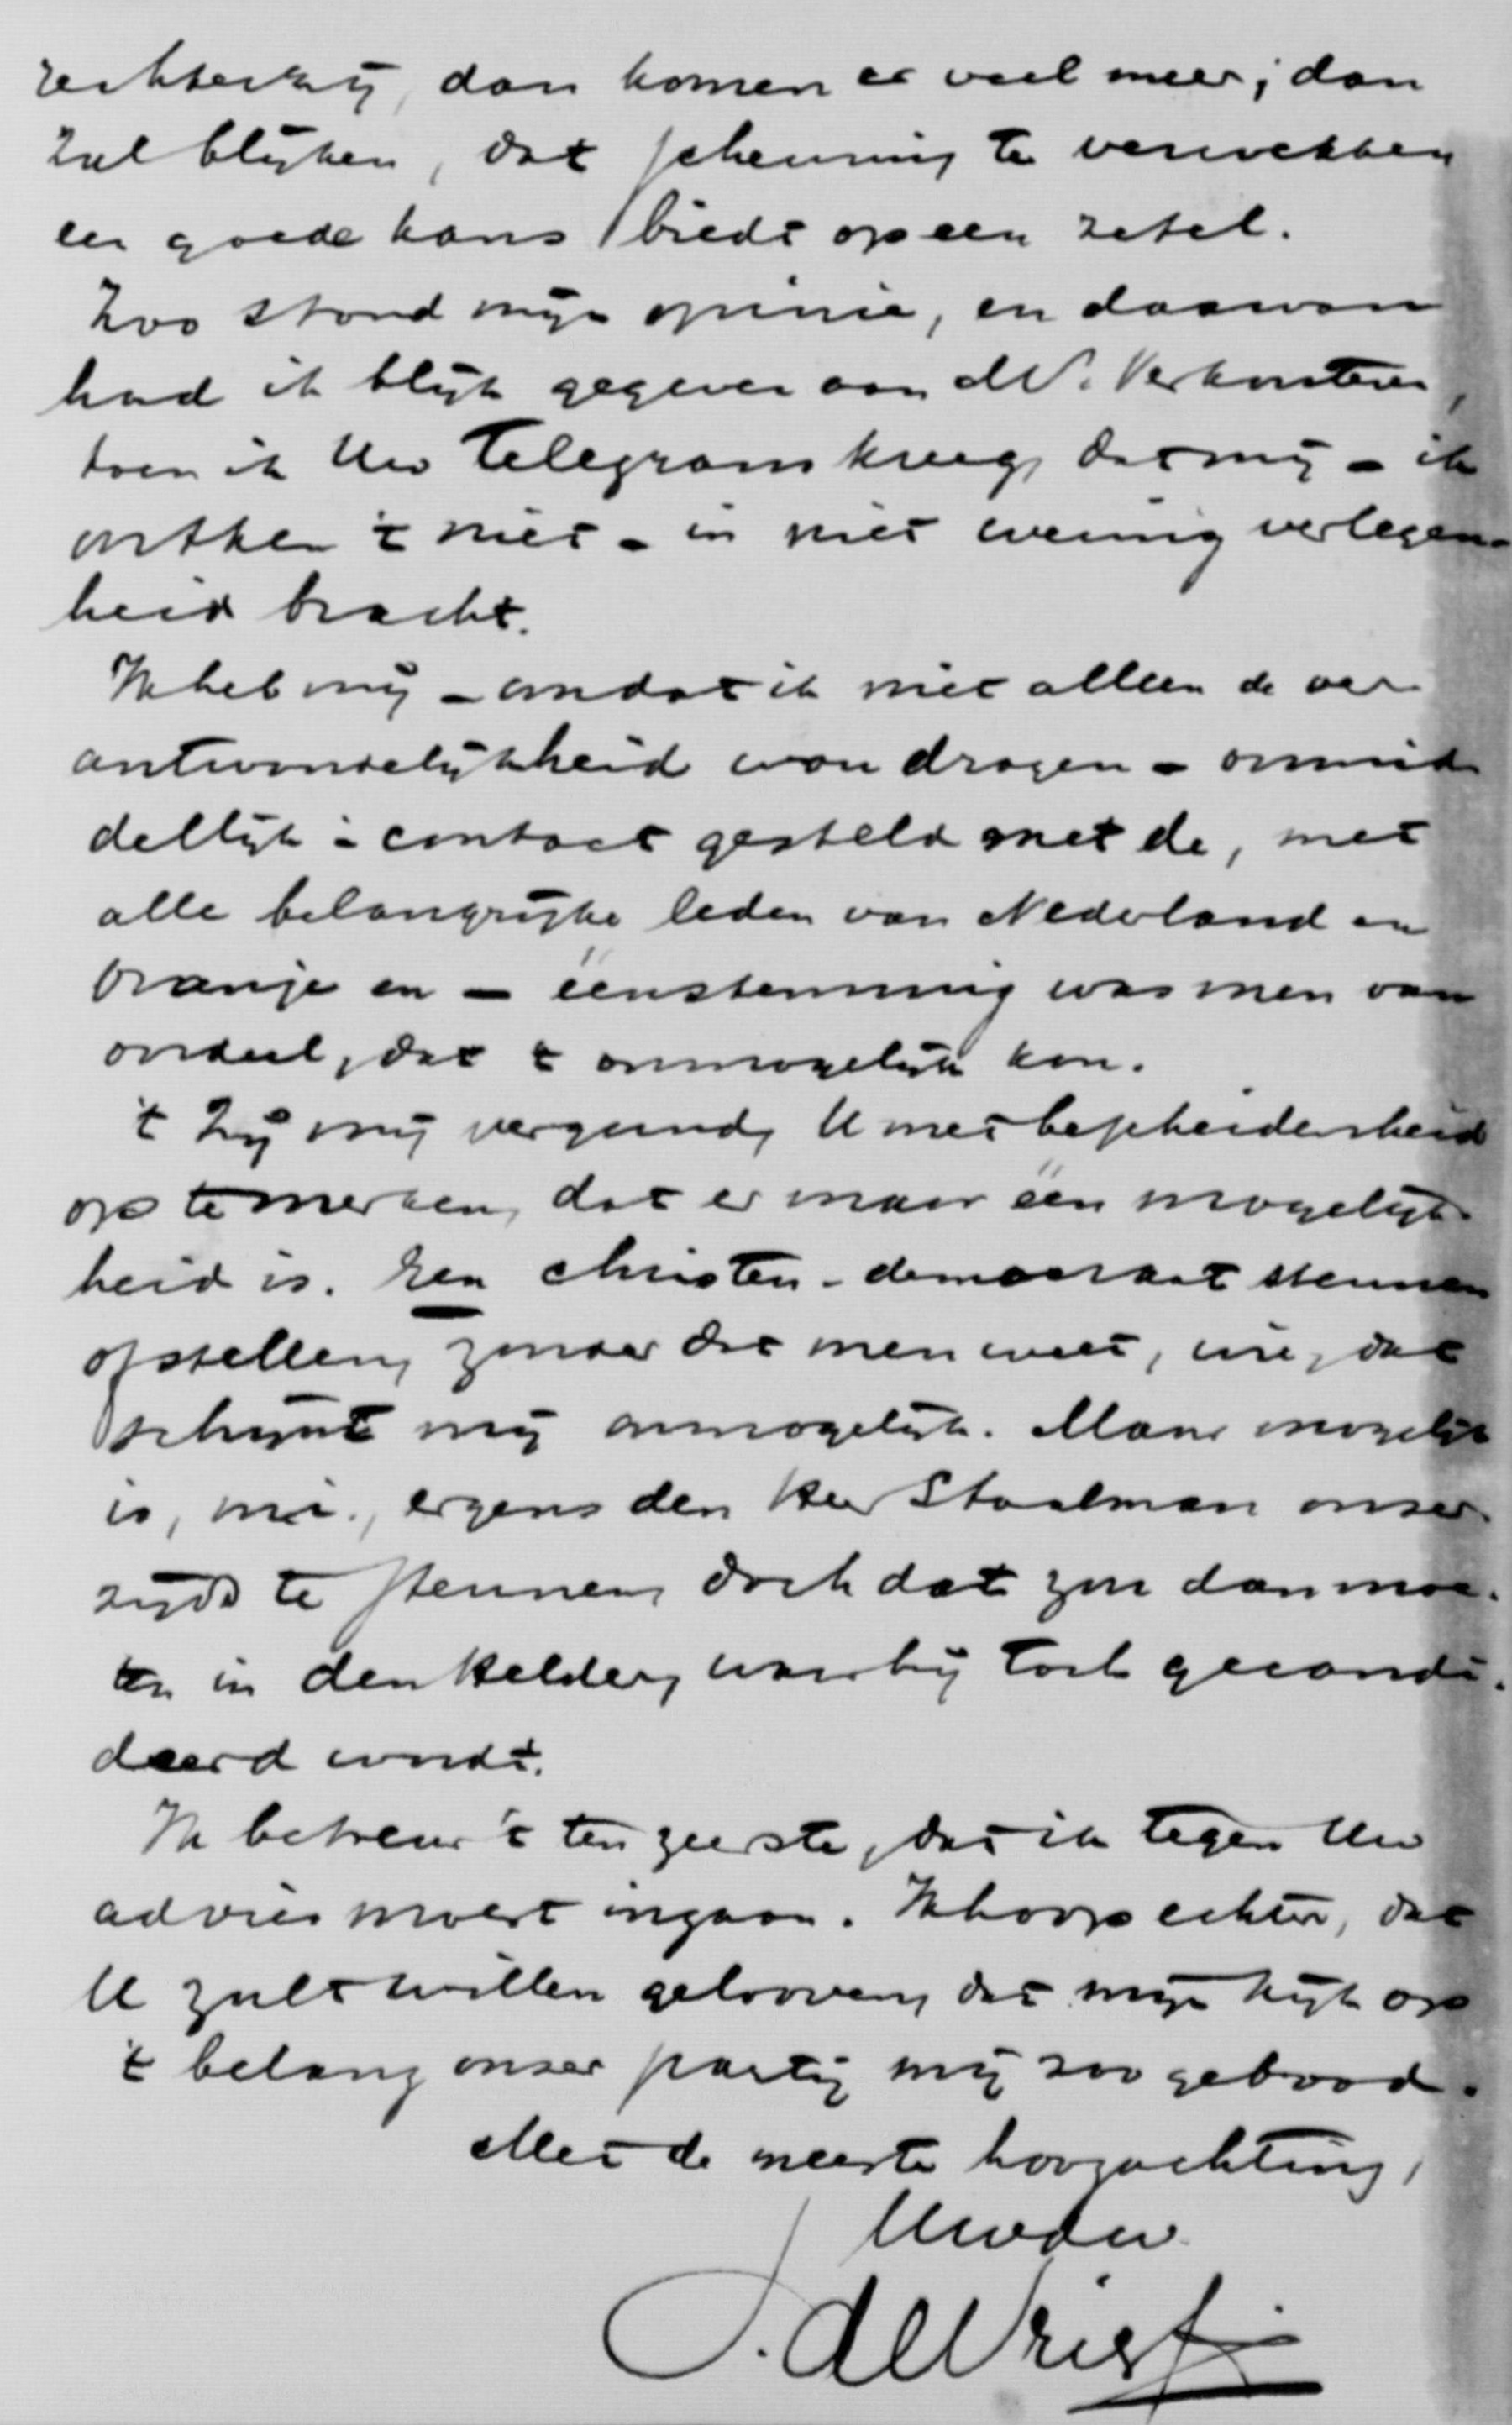 rechterzij, dan komen er veel meer; dan
zal blijken, dat scheuring te verwekken
een goede kans biedt op een zetel.
Zoo stond mijn opinie, en daarvan
had ik blijk gegeven aan dhr. Verkouteren,
toen ik Uw telegram kreeg, dat mij - ik
ontken 't niet - in niet weinig verlegen-
heid bracht.
Ik heb mij - omdat ik niet alleen de ver-
antwoordelijkheid wou dragen - onmid-
dellijk in contact gesteld met de, met
alle belangrijke leden van Nederland en
Oranje en - éénstemmig was men van
oordeel, dat 't onmogelijk kon.
't Zij mij vergund, U met bescheidenheid
op te merken, dat er maar één mogelijk-
heid is. Een christen-democraat steunen
opstellen, zonder dat men weet, wie, dat
schijnt mij onmogelijk. Maar mogelijk
is, m.i., ergens den heer Staalman onzer-
zijds te steunen, doch dat zou dan moe-
ten in den Helder, waar hij toch gecandi-
deerd wordt.
Ik betreur 't ten zeerste, dat ik tegen Uw
advies moest ingaan. Ik hoop echter, dat
U zult willen gelooven, dat mijn kijk op
't belang onzer partij mij zoo gebood.
Met de meeste hoogachting,
Uwe dw.
J. de Vries